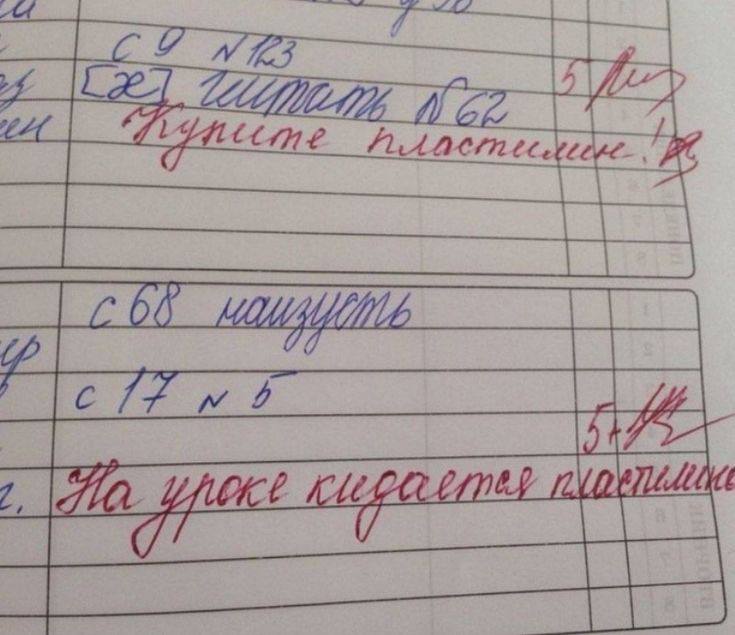 с 9 N 123
[х] читать N 62 5
Купите пластилин!
с 68 наизусть
с 17 N 5
5+
На уроке кидается пластилино